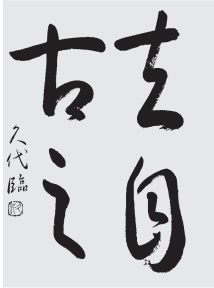 夫自
古之
久代臨